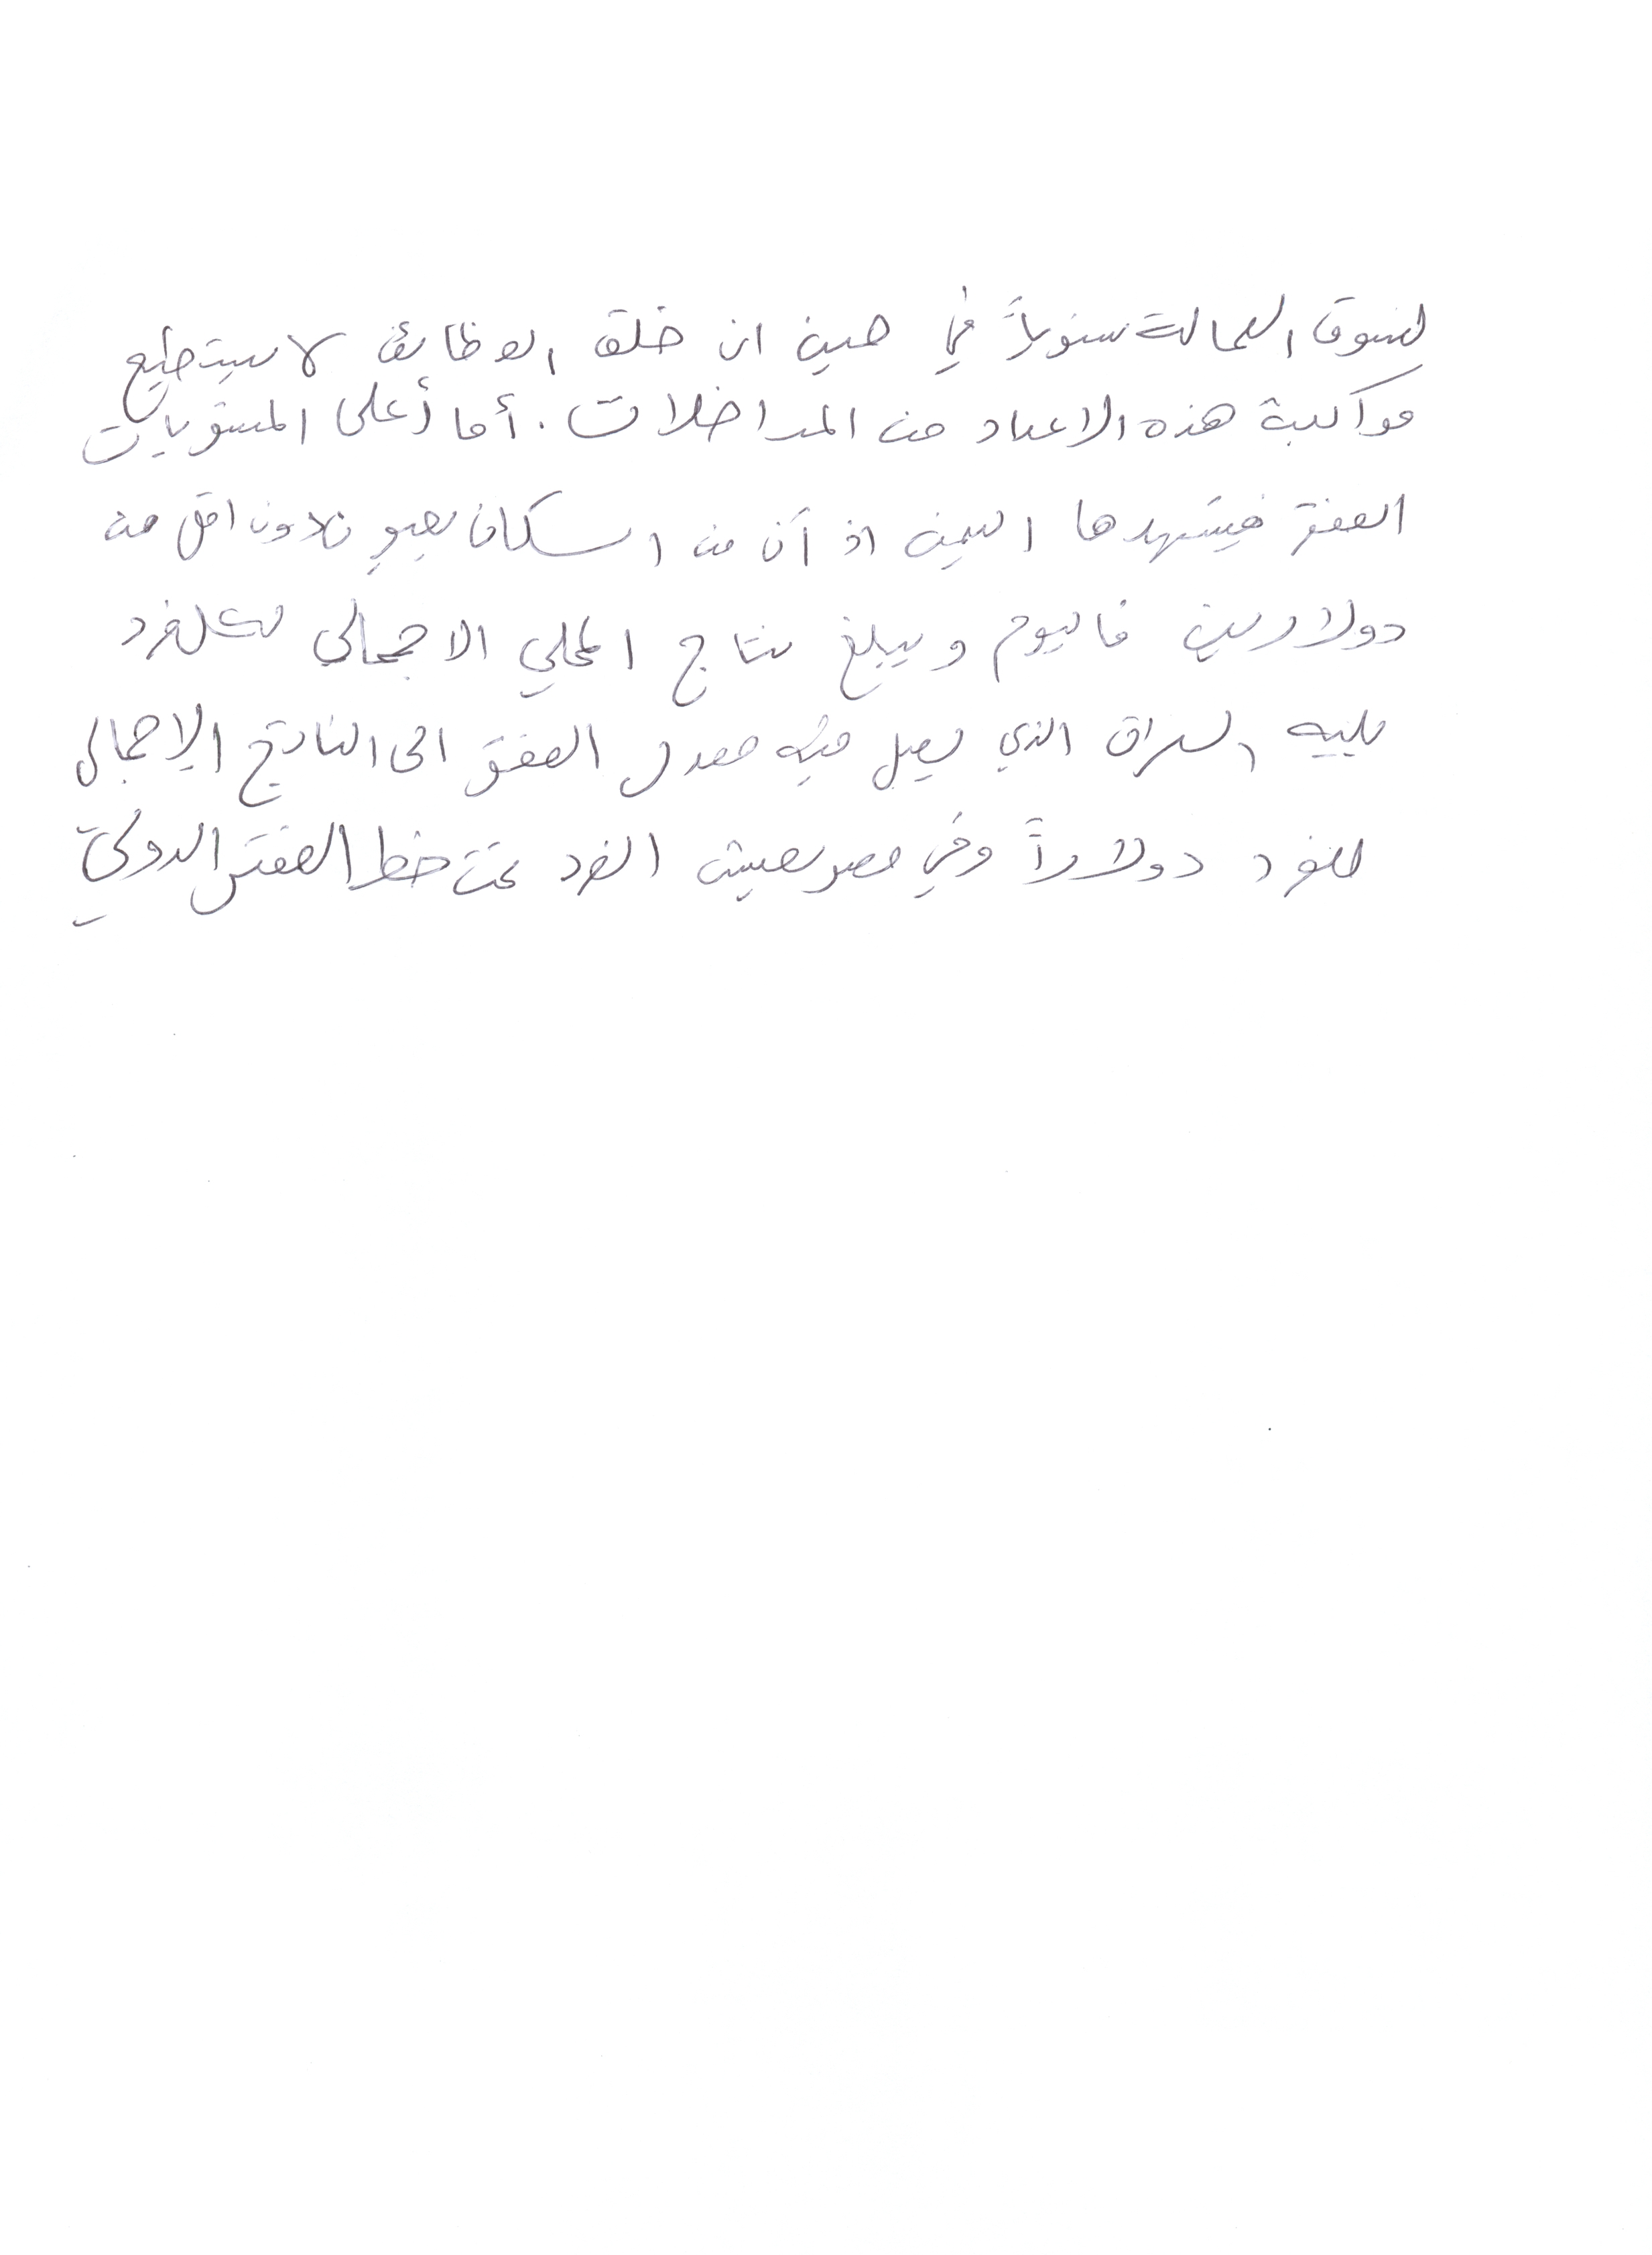 لسوق العمالة سنوياً في حين ان خلق الوظائف لا يستطيع
مواكبة هذه الاعداد من المداخلات. أما أعلى المستويات
الفقر فيشهدها اليمن اذ أن من السكان يعيو ن دون اقل من
دولارين فاليوم ويبلغ نتاج المحلي الاجمالي لكل فرد
يليه العراق الذي يصل فيه معدل الفقر الى الناتج الإجمالي
للفرد دولاراً وفي مصر يعيش الفرد تحت خط الفقر الدولي